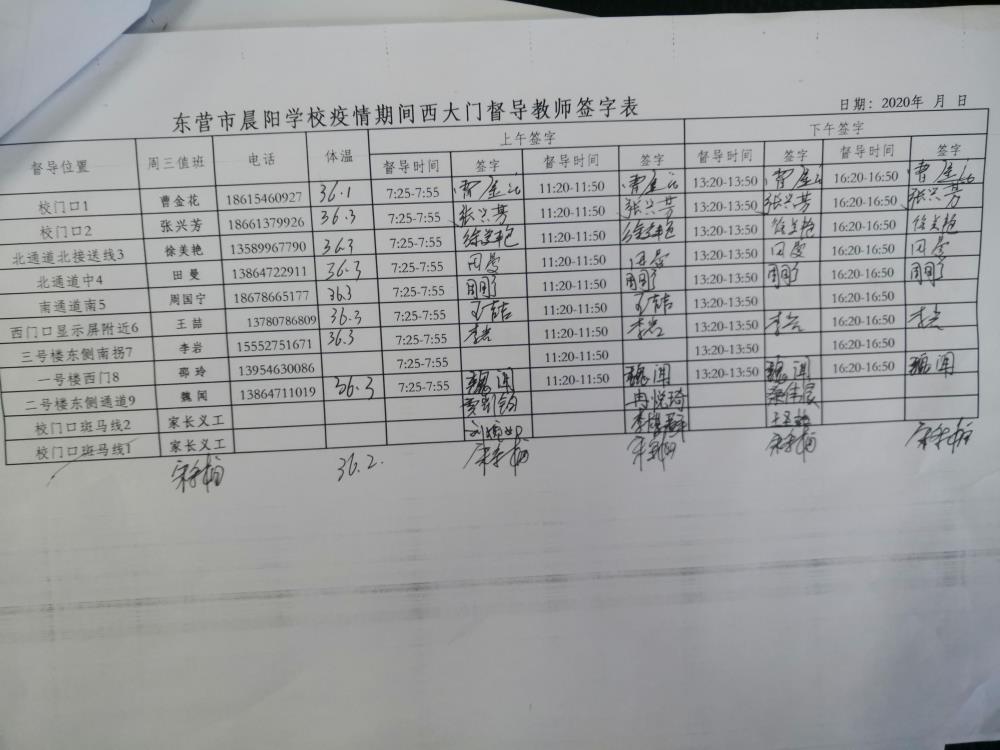 东营市晨阳学校疫情期间西大门督导教师签字表
日期: 2020年 月 日
督导位置 周三值班 电话 体温 上午签字 下午签字
督导时间 签字 督导时间 签字 督导时间 签字 督导时间 签字
校门口1 曹金花 18615460927 36.1 7:25-7:55 曹金花 11:20-11:50 曹金花 13:20-13:50 曹金花 16:20-16:50 曹金花
校门口2 张兴芳 18661379926 36.3 7:25-7:55 张兴芳 11:20-11:50 张兴芳 13:20-13:50 张兴芳 16:20-16:50 张兴芳
北通道北接送线3 徐美艳 13589967790 36.3 7:25-7:55 徐美艳 11:20-11:50 徐美艳 13:20-13:50 徐美艳 16:20-16:50 徐美艳
北通道中4 田曼 13864722911 36.3 7:25-7:55 田曼 11:20-11:50 田曼 13:20-13:50 田曼 16:20-16:50 田曼
南通道南5 周国宁 18678665177 36.3 7:25-7:55 周国宁 11:20-11:50 13:20-13:50 周国宁 16:20-16:50 周国宁
西门口显示屏附近6 王喆 13780786809 36.3 7:25-7:55 王喆 11:20-11:50 王喆 13:20-13:50 16:20-16:50
三号楼东侧南拐7 李岩 15552751671 36.3 7:25-7:55 李岩 11:20-11:50 李岩 13:20-13:50 李岩 16:20-16:50 李岩
一号楼西门8 邵玲 13954630086 7:25-7:55 11:20-11:50 13:20-13:50 16:20-16:50
二号楼东侧通道9 魏闻 13864711019 36.3 7:25-7:55 魏闻 11:20-11:50 魏闻 13:20-13:50 魏闻 16:20-16:50 魏闻
校门口斑马线2 家长义工 冉悦琦
校门口斑马线1 家长义工
36.2.